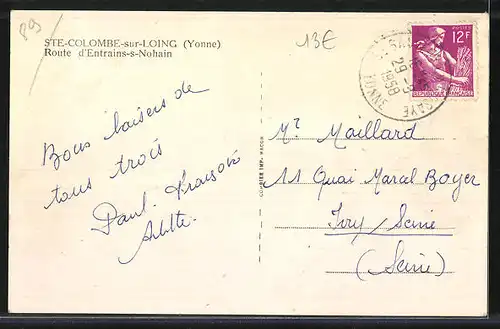 89
13E
STE-COLOMBE-sur-LOING (Yonne)
Route d'Entrains-s-Nohain
POSTES
12F
REPUBLIQUE FRANÇAISE
29-9
1958
YONNE
Bons baisers de
tous trois
Paul. François
Arlette.
COMBIER IMP. MACON
Mr Maillard
11 Quai Marcel Boyer
Ivry/Seine
(Seine)